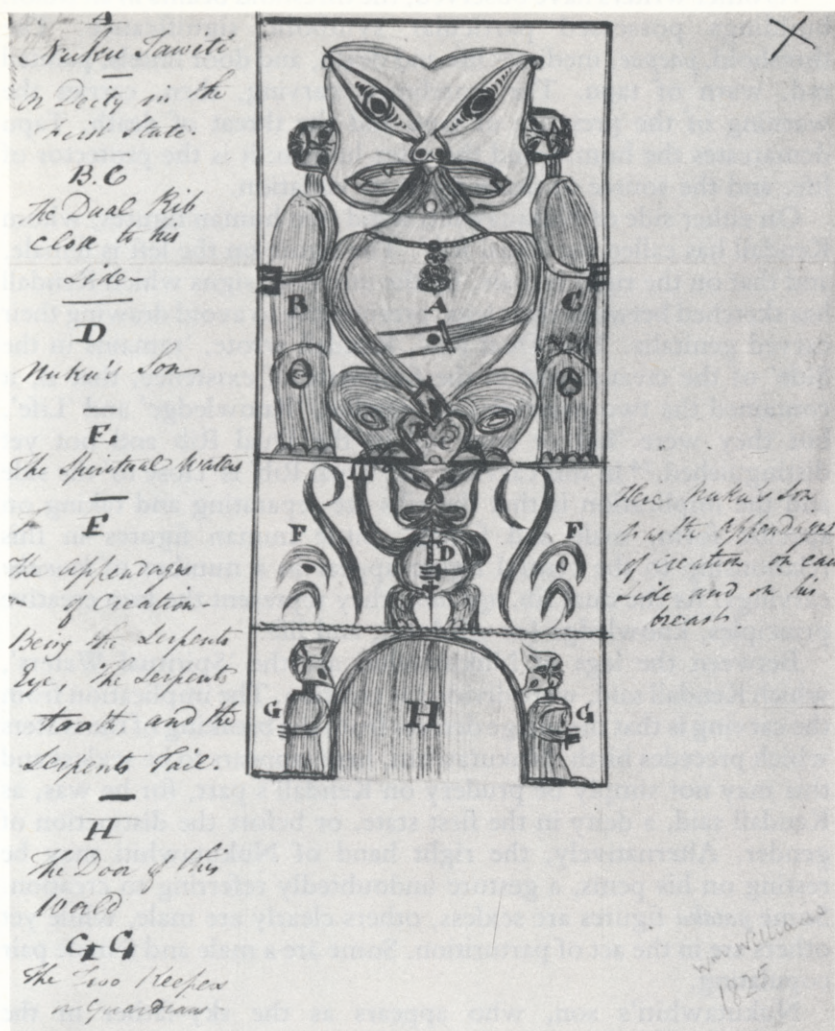 A
Nuku Tawiti
or Deity in the
First State
B.C
The Dual Rib
close to his
Side-
D
Nuku's Son
E.
The Spiritual Waters
F
The appendages
of Creation-
Being the Serpents
Eye, the Serpents
tooth and the
Serpents Tail.
H
The Door of this
World
G G
The Two Keepers
or Guardians
B
A
C
E
F
D
F
G
H
G
Here Nuku's Son
has the appendages
of Creation on each
side and on his
breast.
Williams
1825